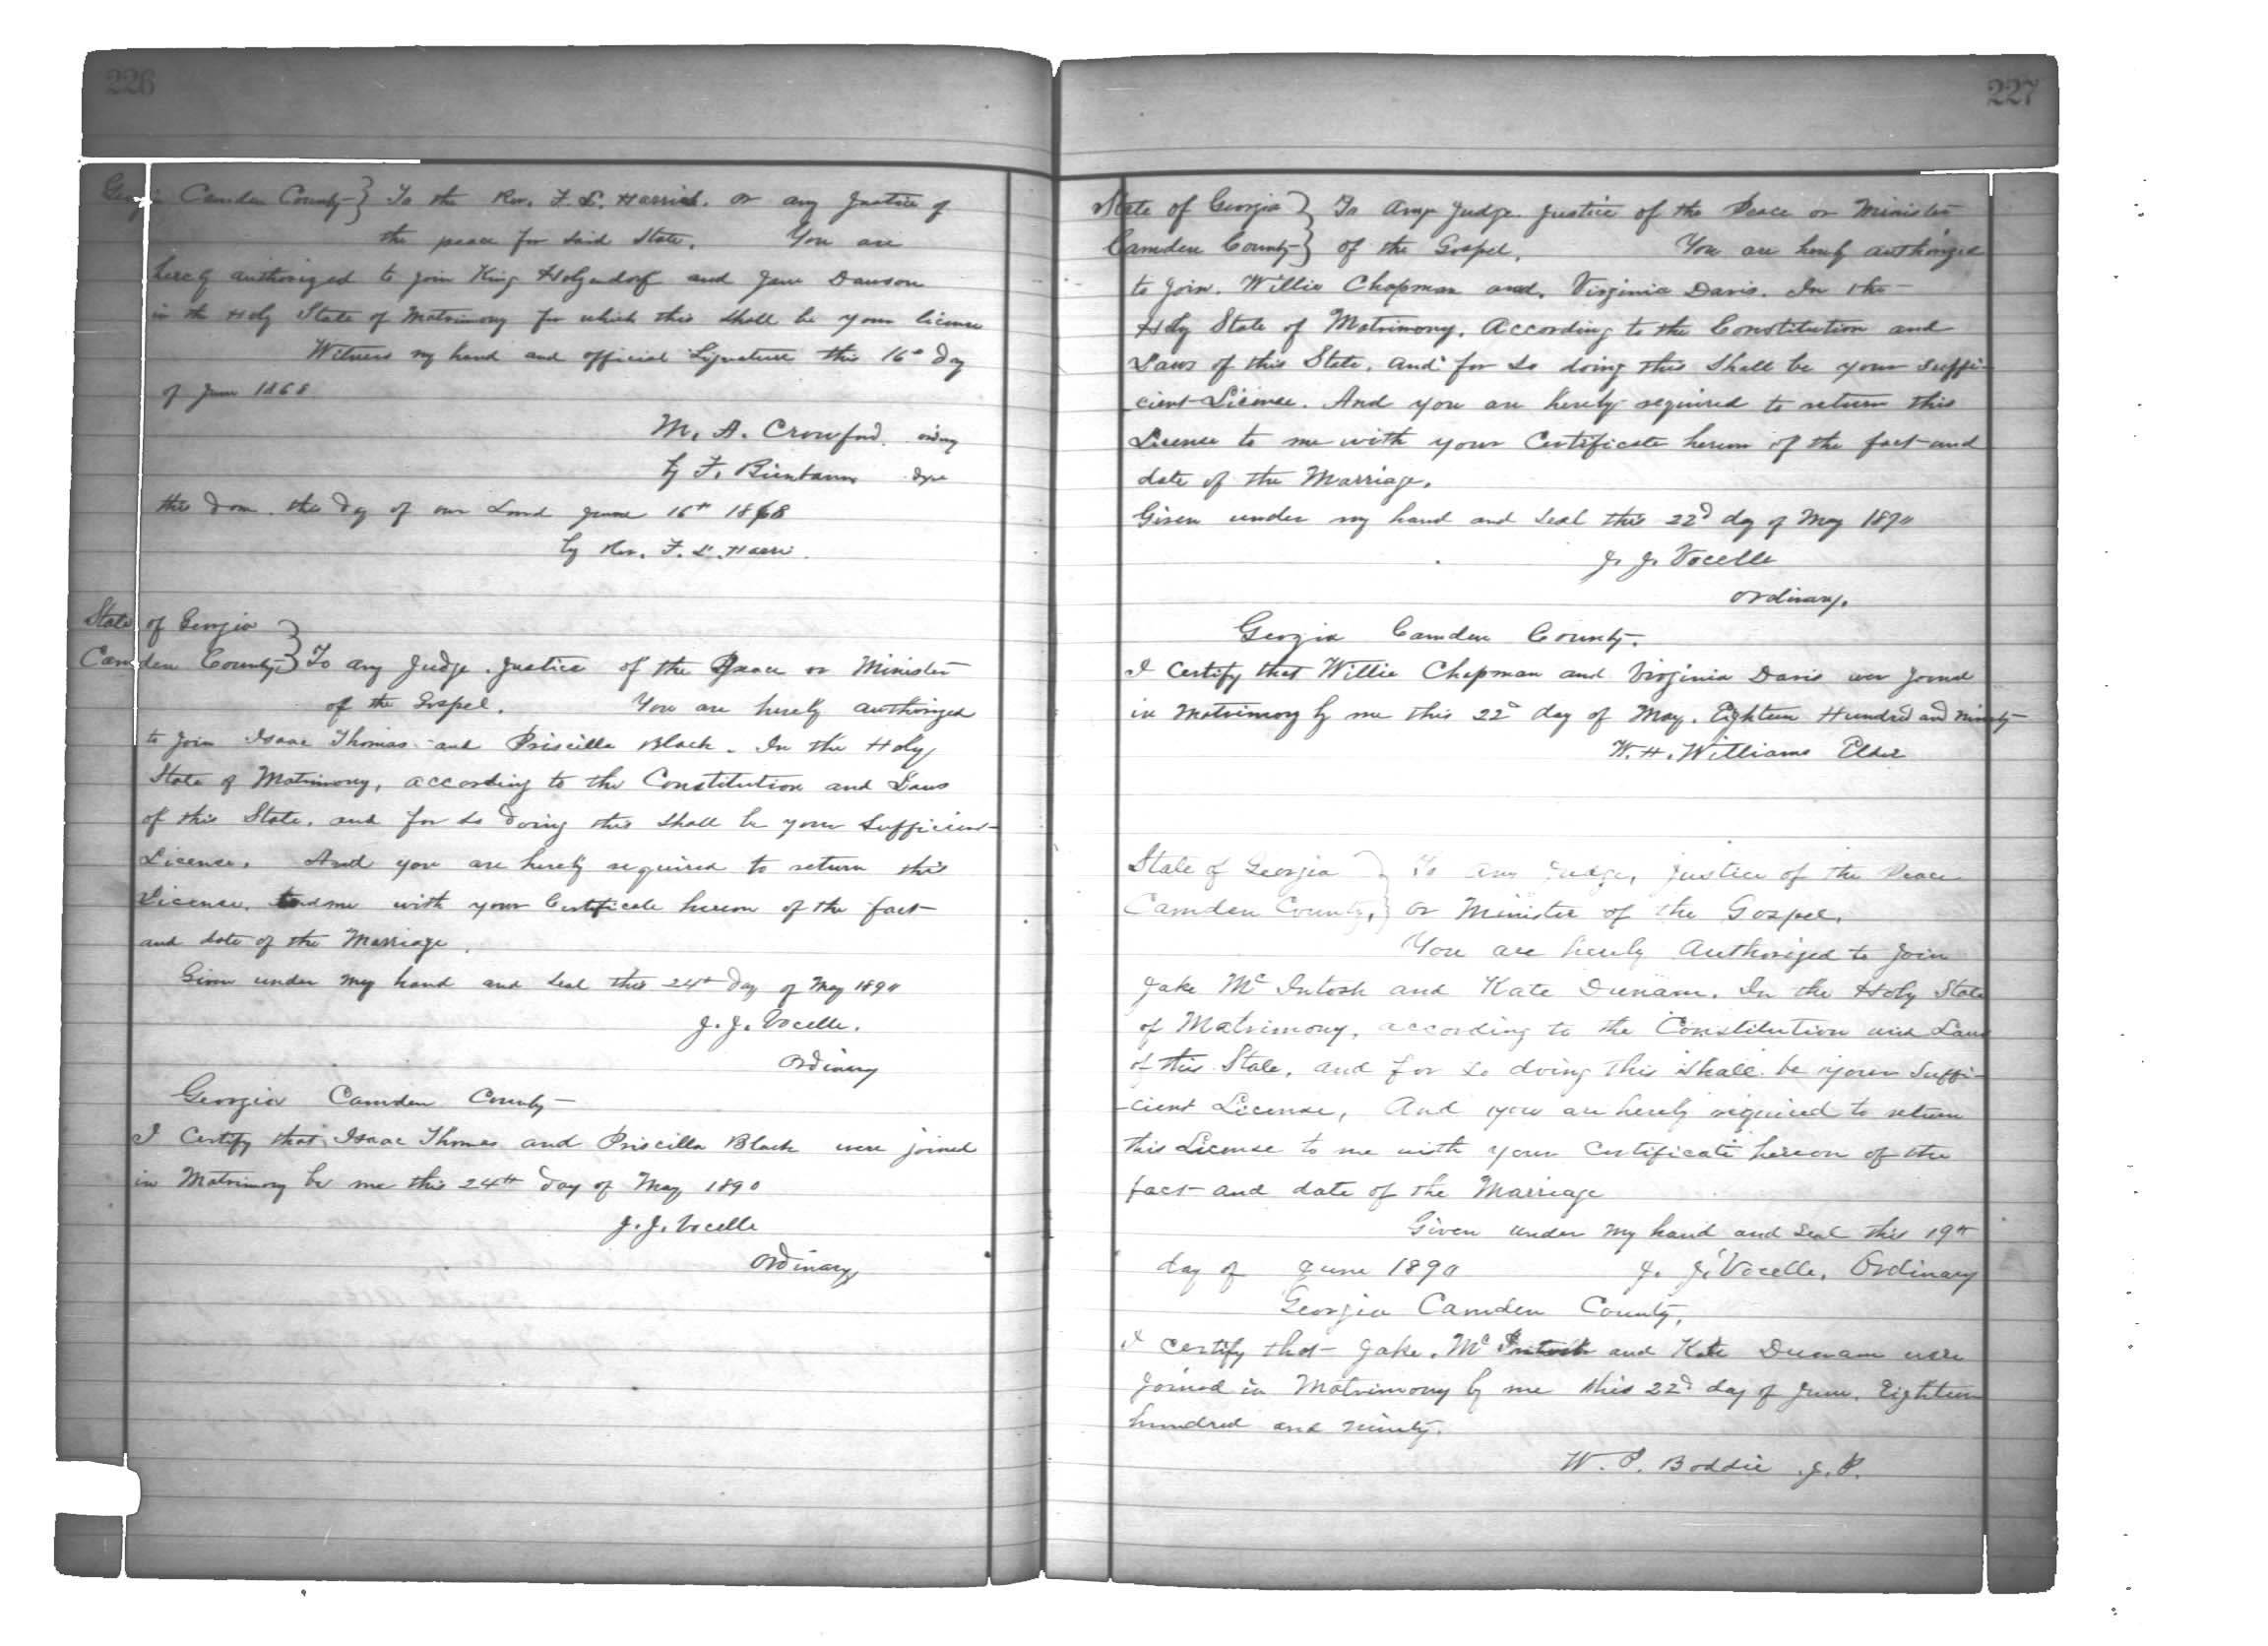 226
Georgia Camden County } To the Rev. F. L. Harris. or any Justice of
the peace for said State. You are
hereby authorized to join King Holzendorf and Jane Dawson
in the Holy State of Matrimony for which this shall be your license
Witness my hand and official Signature this 16th day
of June 1868
M. A. Crawford. ordy
by F. Birnbaum
this done the day of our Lord June 16th 1868
by Rev. F. L. Harris.
State of Georgia
Camden County } To any Judge. Justice of the Peace or Minister
of the Gospel. You are hereby authorized
to join Isaac Thomas and Priscilla Black. In the Holy
State of Matrimony, according to the Constitution and Laws
of this State. and for so doing this shall be your sufficient
License. And you are hereby required to return this
License. to me with your Certificate hereon of the fact
and date of the Marriage.
Given under my hand and seal this 24th day of May 1890
J. J. Vocelle.
Ordinary
Georgia Camden County
I Certify that Isaac Thomas and Priscilla Black were joined
in Matrimony by me this 24th day of May 1890
J. J. Vocelle
Ordinary
227
State of Georgia } To Any Judge. Justice of the Peace or Minister
Camden County } of the Gospel. You are hereby authorized
to join. Willie Chapman and. Virginia Davis. In the
Holy State of Matrimony. According to the Constitution and
Laws of this State. and for so doing this shall be your suffi-
cient License. And you are hereby required to return this
License to me with your Certificate hereon of the fact and
date of the Marriage.
Given under my hand and seal this 22d day of May 1890
J. J. Vocelle
Ordinary.
Georgia Camden County.
I Certify that Willie Chapman and Virginia Davis wer joined
in Matrimony by me this 22d day of May. Eighteen Hundred and Ninety
W. H. Williams Elder
State of Georgia } To any Judge, Justice of the Peace
Camden County, } or Minister of the Gospel.
You are hereby Authorized to join
Jake Mc Intosh and Kate Dunam. In the Holy State
of Matrimony, according to the Constitution and Laws
of this State, and for so doing this shall be your suffi-
cient License, And you are hereby required to return
this License to me with your Certificate hereon of the
fact and date of the Marriage
Given under my hand and seal this 19th
day of June 1890 J. J. Vocelle, Ordinary
Georgia Camden County,
I certify that Jake. Mc Intosh and Kate Dunam were
joined in Matrimony by me this 22d day of June. Eighteen
hundred and ninety.
W. P. Boddie J. P.